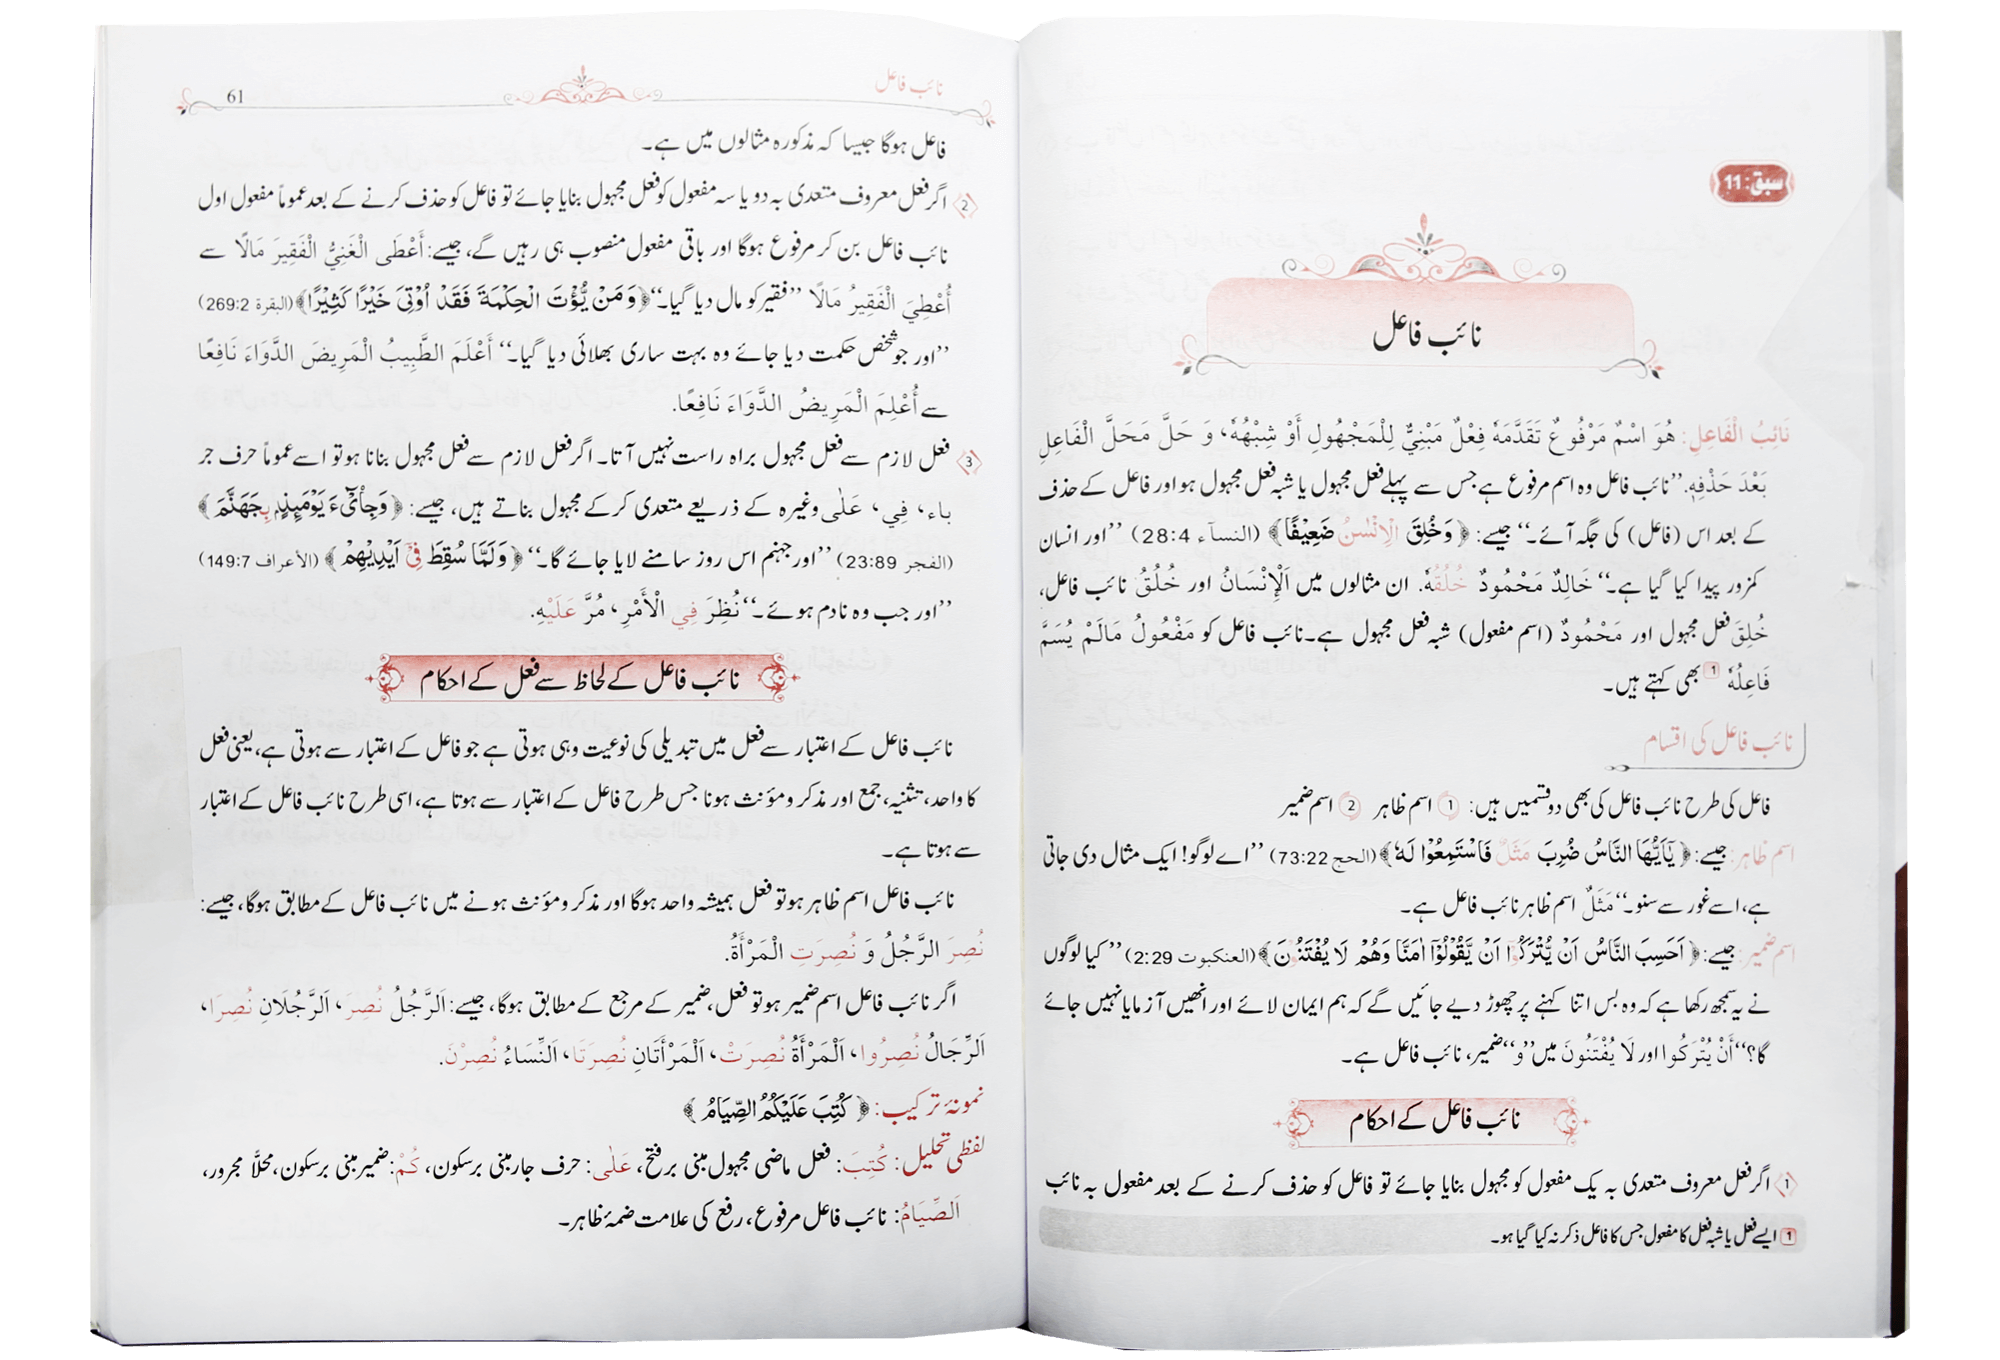 سبق: 11
نائب فاعل
نَائِبُ الْفَاعِلِ: هُوَ اسْمٌ مَرْفُوعٌ تَقَدَّمَهٗ فِعْلٌ مَبْنِيٌّ لِلْمَجْهُولِ أَوْ شِبْهُهٗ، وَ حَلَّ مَحَلَّ الْفَاعِلِ
بَعْدَ حَذْفِهٖ. ’’نائب فاعل وہ اسم مرفوع ہے جس سے پہلے فعل مجہول یا شبہ فعل مجہول ہو اور فاعل کے حذف
کے بعد اس (فاعل) کی جگہ آئے۔‘‘ جیسے: ﴿وَخُلِقَ الْاِنْسٰنُ ضَعِيْفًا﴾ (النسآء 28:4) ’’اور انسان
کمزور پیدا کیا گیا ہے۔‘‘ خَالِدٌ مَحْمُودٌ خُلُقُهٗ. ان مثالوں میں اَلْإِنْسَانُ اور خُلُقُ نائب فاعل،
خُلِقَ فعل مجہول اور مَحْمُودٌ (اسم مفعول) شبہ فعل مجہول ہے۔ نائب فاعل کو مَفْعُولُ مَالَمْ يُسَمَّ
فَاعِلُهٗ 1 بھی کہتے ہیں۔
نائب فاعل کی اقسام
فاعل کی طرح نائب فاعل کی بھی دو قسمیں ہیں: 1 اسم ظاہر 2 اسم ضمیر
اسم ظاہر: جیسے: ﴿يٰٓاَيُّهَا النَّاسُ ضُرِبَ مَثَلٌ فَاسْتَمِعُوْا لَهٗ﴾ (الحج 73:22) ’’اے لوگو! ایک مثال دی جاتی
ہے، اسے غور سے سنو۔‘‘ مَثَلٌ اسم ظاہر نائب فاعل ہے۔
اسم ضمیر: جیسے: ﴿اَحَسِبَ النَّاسُ اَنْ يُّتْرَكُوْٓا اَنْ يَّقُوْلُوْٓا اٰمَنَّا وَهُمْ لَا يُفْتَنُوْنَ﴾ (العنكبوت 2:29) ’’کیا لوگوں
نے یہ سمجھ رکھا ہے کہ وہ بس اتنا کہنے پر چھوڑ دیے جائیں گے کہ ہم ایمان لائے اور انھیں آزمایا نہیں جائے
گا؟‘‘ أَنْ يُتْرَكُوا اور لَا يُفْتَنُونَ میں ’’و‘‘ ضمیر، نائب فاعل ہے۔
نائب فاعل کے احکام
1 اگر فعل معروف متعدی بہ یک مفعول کو مجہول بنایا جائے تو فاعل کو حذف کرنے کے بعد مفعول بہ نائب
1 ایسے فعل یا شبہ فعل کا مفعول جس کا فاعل ذکر نہ کیا گیا ہو۔
نائب فاعل 61
فاعل ہوگا جیسا کہ مذکورہ مثالوں میں ہے۔
2 اگر فعل معروف متعدی بہ دو یا سہ مفعول کو فعل مجہول بنایا جائے تو فاعل کو حذف کرنے کے بعد عموماً مفعول اول
نائب فاعل بن کر مرفوع ہوگا اور باقی مفعول منصوب ہی رہیں گے، جیسے: أَعْطَى الْغَنِيُّ الْفَقِيرَ مَالًا سے
أُعْطِيَ الْفَقِيرُ مَالًا ’’فقیر کو مال دیا گیا۔‘‘ ﴿وَمَنْ يُّؤْتَ الْحِكْمَةَ فَقَدْ اُوْتِيَ خَيْرًا كَثِيْرًا﴾ (البقرة 269:2)
’’اور جو شخص حکمت دیا جائے وہ بہت ساری بھلائی دیا گیا۔‘‘ أَعْلَمَ الطَّبِيبُ الْمَرِيضَ الدَّوَاءَ نَافِعًا
سے أُعْلِمَ الْمَرِيضُ الدَّوَاءَ نَافِعًا.
3 فعل لازم سے فعل مجہول براہ راست نہیں آتا۔ اگر فعل لازم سے فعل مجہول بنانا ہو تو اسے عموماً حرف جر
باء، فِي، عَلٰى وغیرہ کے ذریعے متعدی کرکے مجہول بناتے ہیں، جیسے: ﴿وَجِايْٓءَ يَوْمَىِٕذٍۭ بِجَهَنَّمَ﴾
(الفجر 23:89) ’’اور جہنم اس روز سامنے لایا جائے گا۔‘‘ ﴿وَلَمَّا سُقِطَ فِيْٓ اَيْدِيْهِمْ﴾ (الأعراف 149:7)
’’اور جب وہ نادم ہوئے۔‘‘ نُظِرَ فِي الْأَمْرِ، مُرَّ عَلَيْهِ.
نائب فاعل کے لحاظ سے فعل کے احکام
نائب فاعل کے اعتبار سے فعل میں تبدیلی کی نوعیت وہی ہوتی ہے جو فاعل کے اعتبار سے ہوتی ہے، یعنی فعل
کا واحد، تثنیہ، جمع اور مذکر و مؤنث ہونا جس طرح فاعل کے اعتبار سے ہوتا ہے، اسی طرح نائب فاعل کے اعتبار
سے ہوتا ہے۔
نائب فاعل اسم ظاہر ہو تو فعل ہمیشہ واحد ہوگا اور مذکر و مؤنث ہونے میں نائب فاعل کے مطابق ہوگا، جیسے:
نُصِرَ الرَّجُلُ وَ نُصِرَتِ الْمَرْأَةُ.
اگر نائب فاعل اسم ضمیر ہو تو فعل، ضمیر کے مرجع کے مطابق ہوگا، جیسے: اَلرَّجُلُ نُصِرَ، اَلرَّجُلَانِ نُصِرَا،
اَلرِّجَالُ نُصِرُوا، اَلْمَرْأَةُ نُصِرَتْ، اَلْمَرْأَتَانِ نُصِرَتَا، اَلنِّسَاءُ نُصِرْنَ.
نمونۂ ترکیب: ﴿كُتِبَ عَلَيْكُمُ الصِّيَامُ﴾
لفظی تحلیل: كُتِبَ: فعل ماضی مجہول مبنی بر فتح، عَلٰى: حرف جار مبنی بر سکون، كُمْ: ضمیر مبنی بر سکون، محلاً مجرور،
اَلصِّيَامُ: نائب فاعل مرفوع، رفع کی علامت ضمۂ ظاہر۔